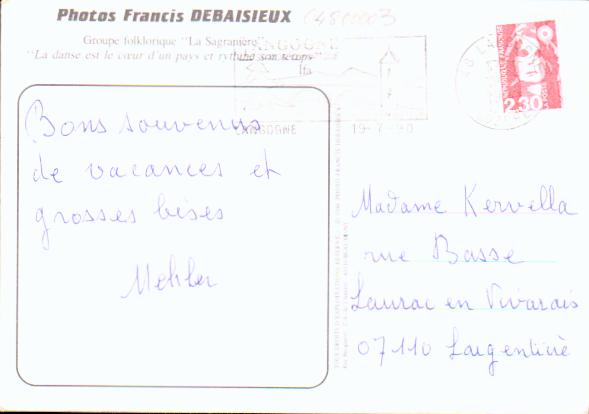 Photos Francis DEBAISIEUX C4800003
Groupe folklorique "La Sagranière"
"La danse est le cœur d'un pays et rythme son temps"
LANGOGNE
LANGOGNE 19-7-90
2,30
Bons souvenirs
de vacances et
grosses bises
Madame Kervella
rue Basse
Laurac en Vivarais
07110 Largentière